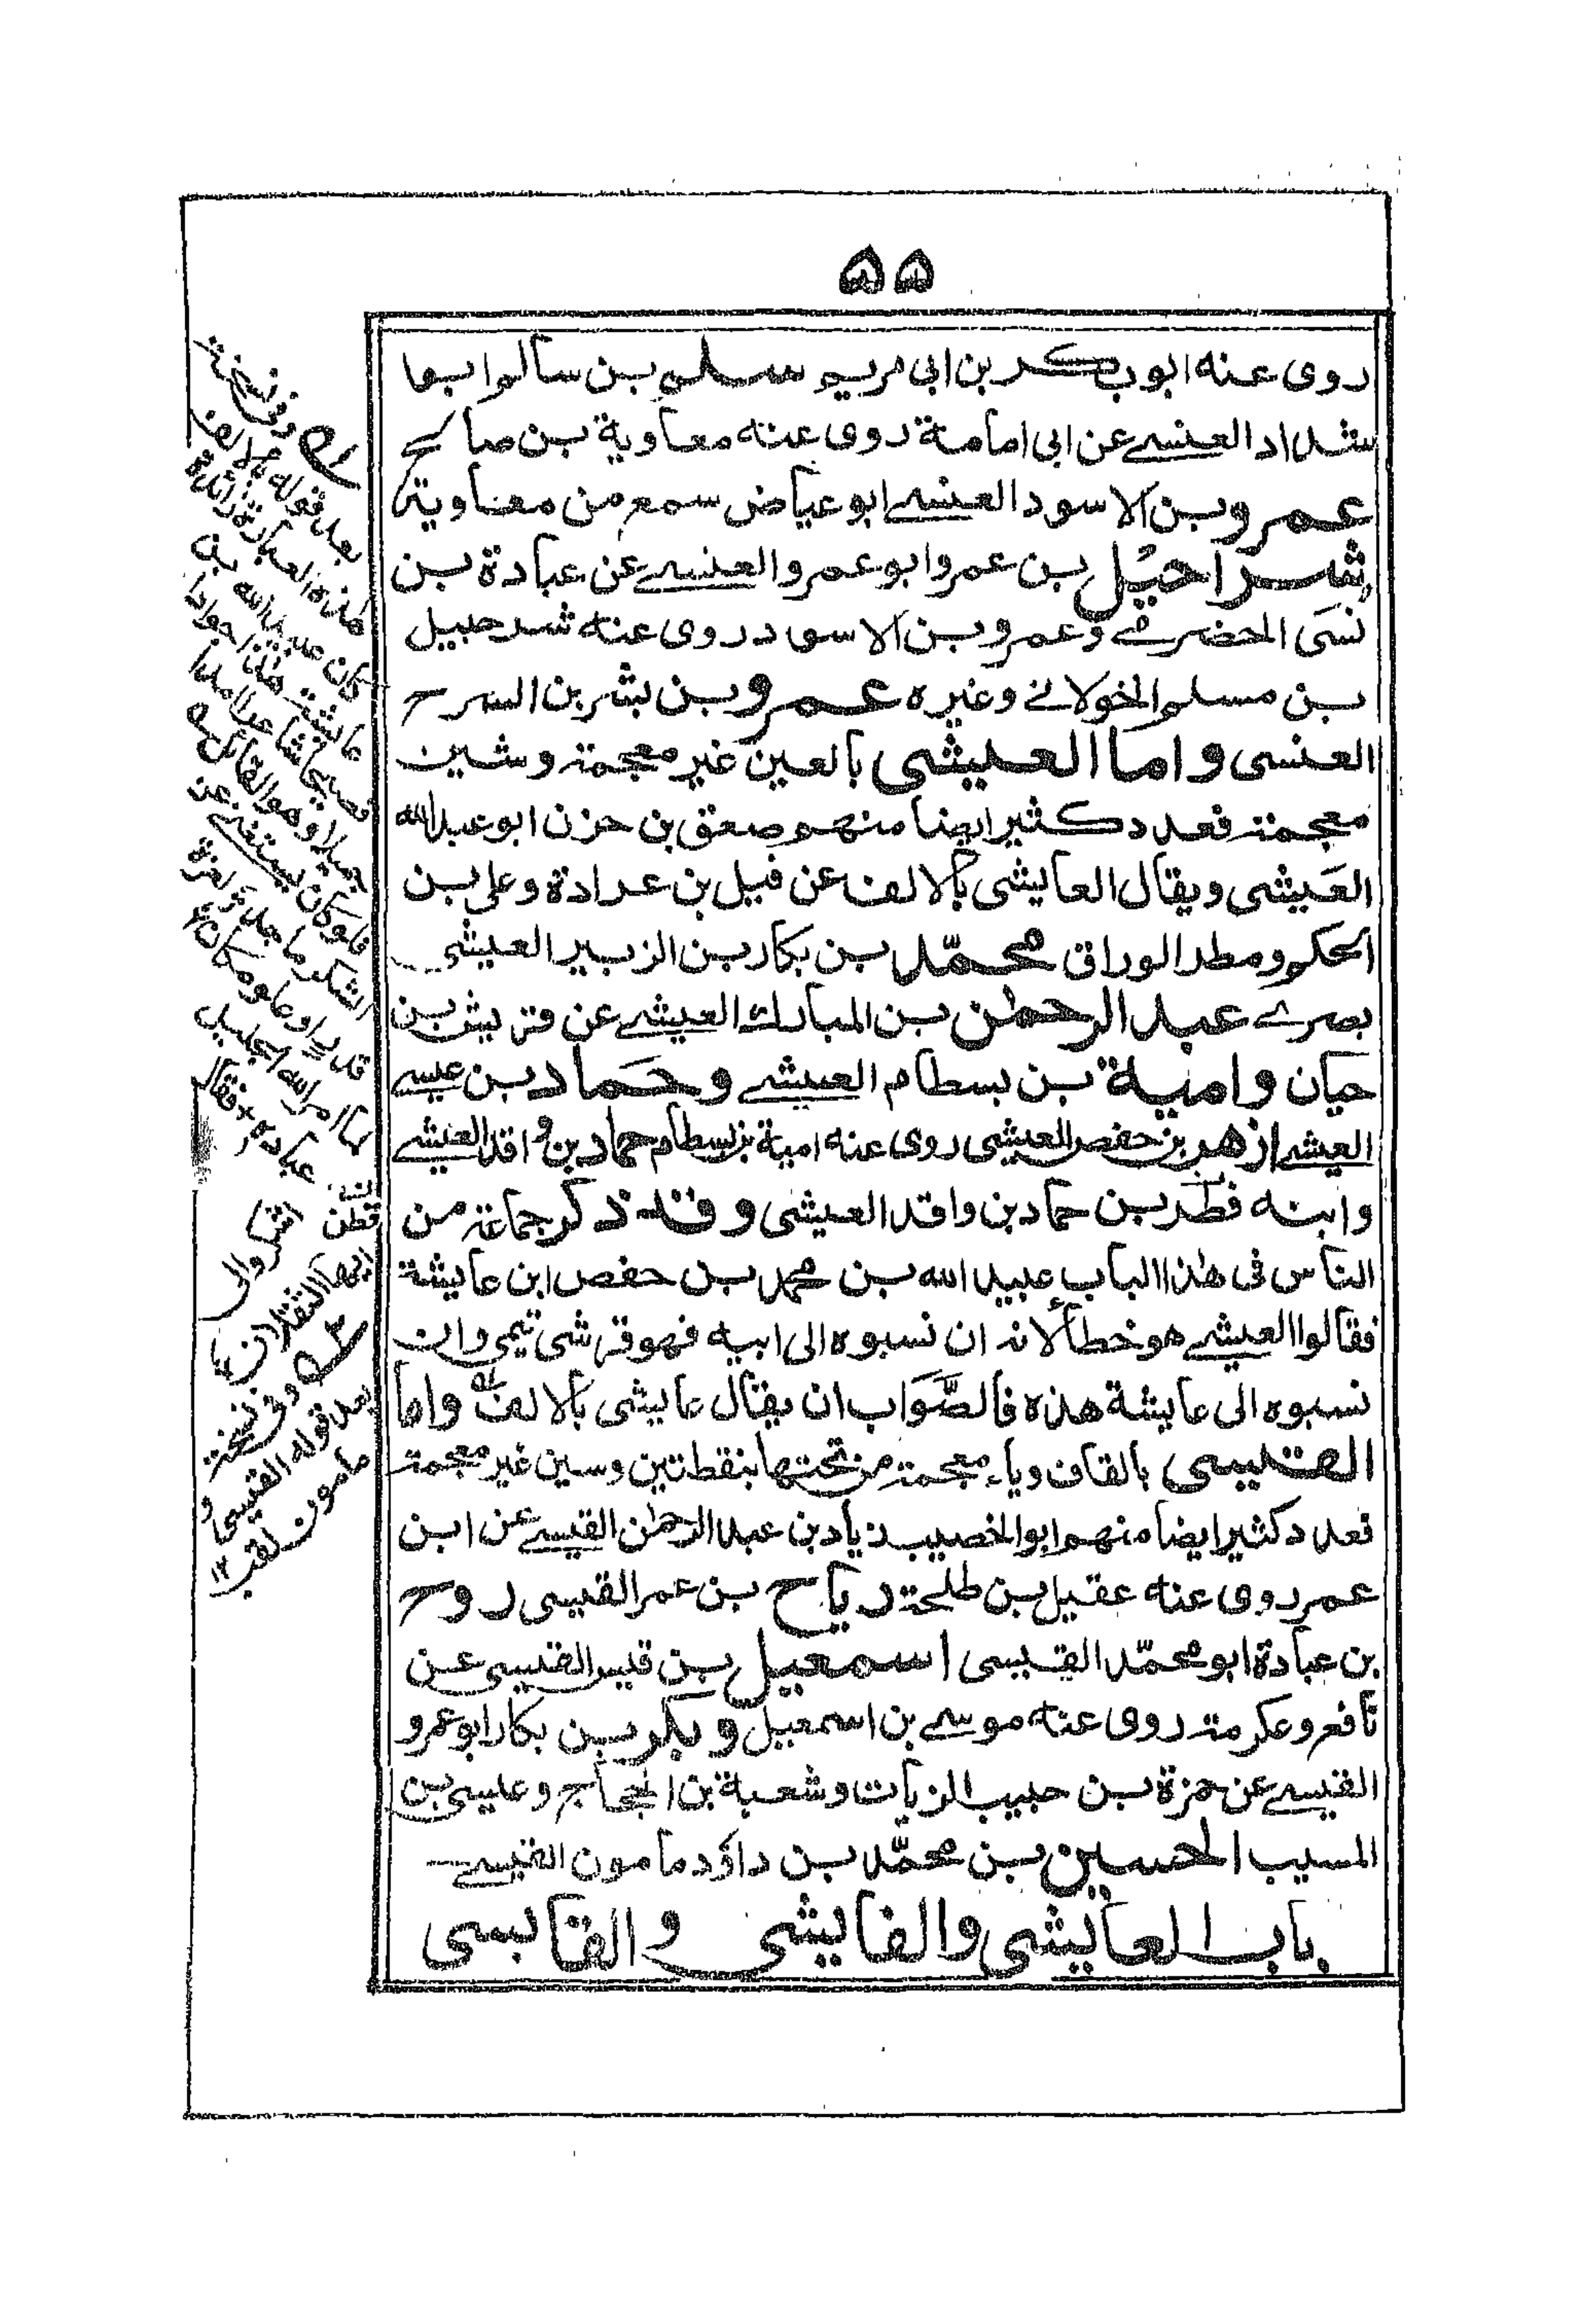 ۵۵
روى عنه ابوبكر بن ابى مريم سليم بن سالم ابو
شداد العنسى عن ابى امامة روى عنه معاوية بن صالح
عمرو بن الاسود العنسى ابو عياض سمع من معاوية
شراحيل بن عمرو ابو عمرو العنسى عن عبادة بن
نسى الحضرمى وعمرو بن الاسود روى عنه شرحبيل
بن مسلم الخولانى وغيره عمرو بن بشر بن السرح
العنسى واما العيشى بالعين غير معجمة وشين
معجمة فعدد كثير ايضا منهم صعق بن حزن ابو عبدالله
العَيشى ويقال العايشى بالالف عن فيل بن عرادة وعلى بن
الحكم ومطر الوراق محمّد بن بكار بن الزبير العيشى
بصرى عبد الرحمٰن بن المبارك العيشى عن قريش بن
حيان وامية بن بسطام العيشى وحماد بن عيسى
العيشى ازهر بن حفص العيشى روى عنه امية بن بسطام حماد بن واقد العيشى
وابنه فطر بن حماد بن واقد العيشى وقد ذكر جماعة من
الناس فى هٰذا الباب عبيد الله بن محمد بن حفص ابن عايشة
فقالوا العيشى هو خطأ لانه ان نسبوه الى ابيه فهو قرشى تيمى وان
نسبوه الى عايشة هذه فالصَّوَاب ان يقال عايشى بالالف واما
القيسى بالقاف وياء معجمة من تحتها بنقطتين وسين غير معجمة
فعدد كثير ايضا منهم ابو الخصيب زياد بن عبد الرحمٰن القيسى عن ابن
عمر روى عنه عقيل بن طلحة رياح بن عمر القيسى روح
بن عبادة ابو محمّد القيسى اسمعيل بن قيس القيسى عن
نافع وعكرمة روى عنه موسى بن اسمعيل وبكر بن بكار ابو عمرو
القيسى عن حمزة بن حبيب الزيات وشعبة بن الحجاج وعيسى بن
المسيب الحسين بن محمّد بن داؤد مامون القيسى
باب العايشى والفايشى والقابسى
وفى نسخة
بعد قوله بالالف
هذه العبارة زائدة
كان عبيد الله بن
عائشة هذا جوادا
فصيحا شاعرا
جميلا وهو القائل
فلو كان يستغنى عن
الشكر ماجد لعزة
قدر او علو مكان
لما امر الله الجليل
عباده فقال
اشكروا لى
ايها الثقلان
وفى نسخة
بعد قوله القيسى و
مامون لقب ۱۲